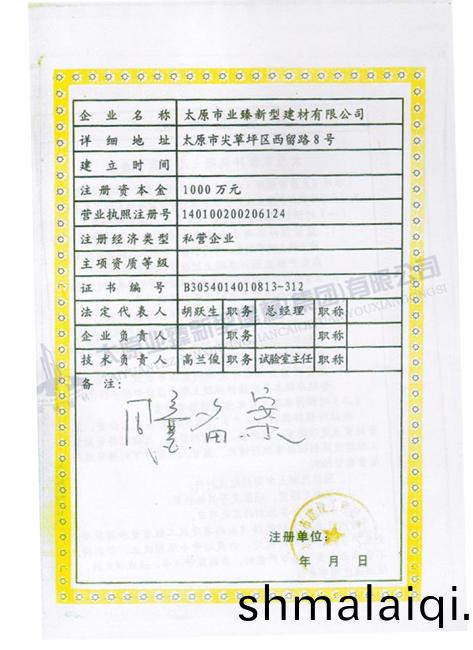 企业名称 太原市业臻新型建材有限公司
详细地址 太原市尖草坪区西留路8号
建立时间
注册资本金 1000万元
营业执照注册号 140100200206124
注册经济类型 私营企业
主项资质等级
证书编号 B3054014010813-312
法定代表人 胡跃生 职务 总经理 职称
企业负责人 职务 职称
技术负责人 高兰俊 职务 试验室主任 职称
备注:
注册单位:
年 月 日
shmalaiqi.